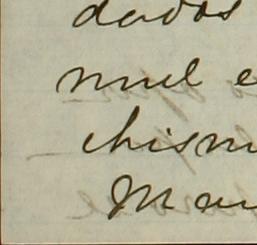 dados
mul e
chism
Man